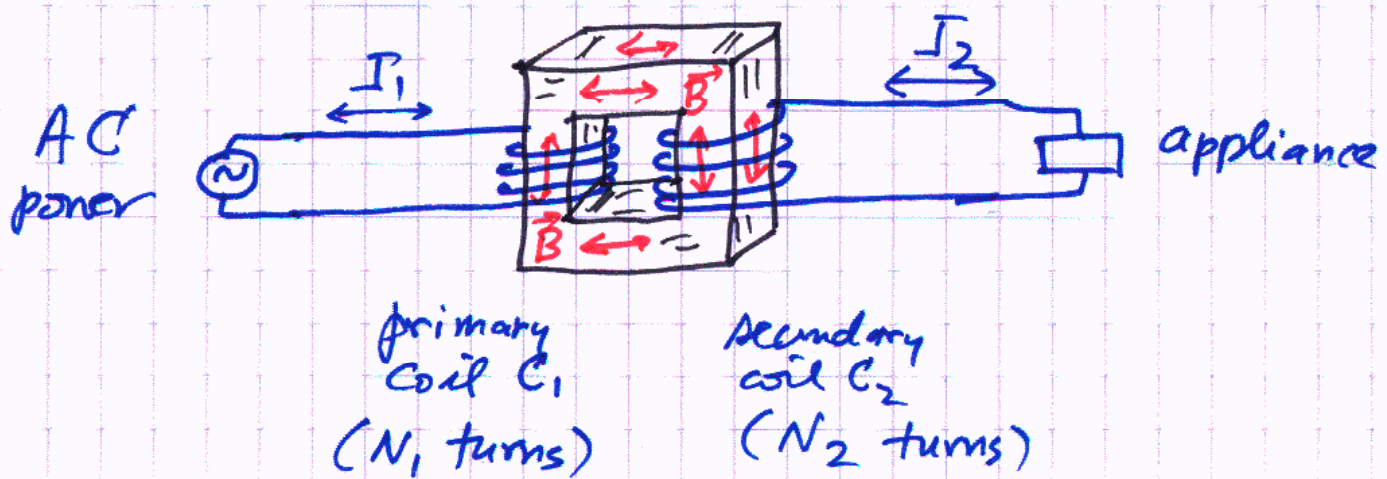 I₁
I₂
AC
power
~
B⃗
B⃗
appliance
primary
coil C₁
(N₁ turns)
secondary
coil C₂
(N₂ turns)